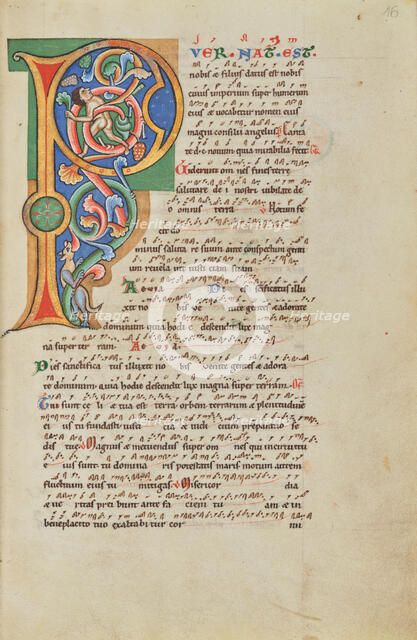 16
P
VER· NAT· EST·
nobis & filius datus est nobis
cuius imperium super humerum
eius & vocabitur nomen eius
magni consilii angelus Canta
te d· c· novum quia mirabilia fecit
Viderunt om nes fines terre
salutare de i nostri iubilate de
o omnis terra Notum fe
cit do
minus saluta re suum ante conspectum genti
um revela vit iusti ciam suam
A
sanctificatus illu
xit no bis venite gentes & adorate
dominum quia hodie descendit lux mag
na super ter ram
Dies sanctifica tus illuxit no bis venite gentes & adora
te dominum quia hodie descendit lux magna super terram.
Tui sunt ce li & tua est terra orbem terrarum & plenitudinem
eius tu fundasti iusti cia & iudi cium preparatio se
dis tue Magnus & metuendus super om nes qui in circuitu
eius sunt tu domina ris potestati maris motum autem
fluctuum eius tu mitigas Misericor dia
& ve ritas preibunt ante fa ciem tu am & in
beneplacito tuo exaltabitur cor nu
Heritage
Images